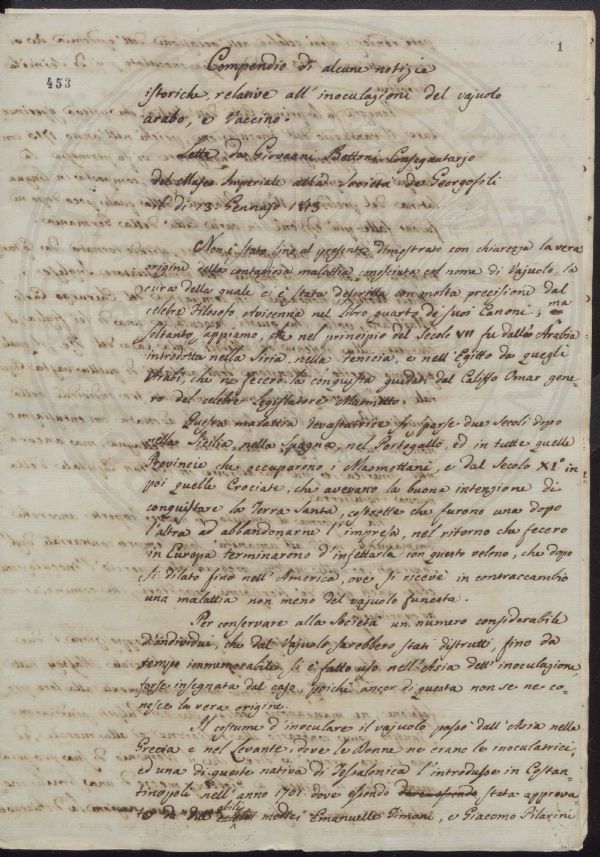 1
453
Compendio di alcune notizie
istoriche, relative all'inoculazioni del vajuolo
arabo, e Vaccino.
Letta da Giovanni Bettoni Consegnatario
del Museo Imperiale alla Società de Georgofili
il dì 13. Gennajo 1813
Non è stato fino al presente dimostrato con chiarezza la vera
origine della contagiosa malattia conosciuta col nome di Vajuolo, la
cura della quale ci è stata descritta con molta precisione dal
celebre Filosofo Avicenna nel libro quarto de suoi Canoni; ma
soltanto sappiamo, che nel principio del Secolo VII fu dall'Arabia
introdotta nella Siria, nella Fenicia, e nell'Egitto da quegli
Arabi, che ne fecero la conquista guidati dal Califfo Omar gene-
ro del celebre Legislatore Maometto.
Questa malattia devastatrice si sparse due Secoli dopo
nella Sicilia, nella Spagna, nel Portogallo, ed in tutte quelle
Provincie che occuparono i Maomettani, e dal Secolo XI.º in
poi quelle Crociate, che avevano la buona intenzione di
conquistare la Terra Santa, costrette che furono una dopo
l'altra ad abbandonarne l'impresa, nel ritorno che fecero
in Europa terminarono d'infettarla con questo veleno, che dopo
si dilatò fino nell'America, ove si ricevè in contraccambio
una malattia non meno del vajuolo funesta.
Per conservare alla Società un numero considerabile
d'individui, che dal Vajuolo sarebbero stati distrutti, fino da
tempo immemorabile si è fatto uso nell'Asia dell'inoculazione,
forse insegnata dal caso, poichè ancor di questa non se ne co-
nosce la vera origine.
Il costume d'inoculare il vajuolo passò dall'Asia nella
Grecia e nel Levante, dove le Donne ne erano le inoculatrici,
ed una di queste nativa di Tessalonica l'introdusse in Costan-
tinopoli nell'anno 1701. dove essendo stata approva-
ta da due abili medici Emanuelle Timoni, e Giacomo Pilarini